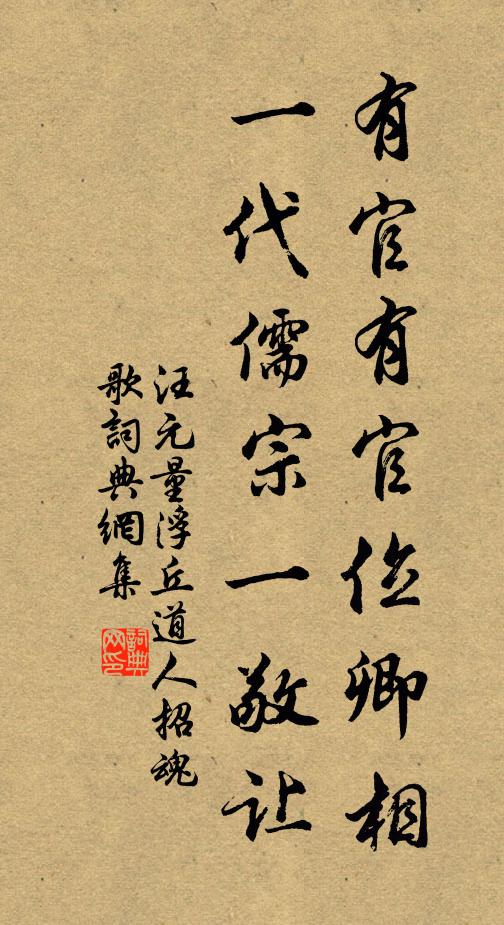 有官有官位卿相
一代儒宗一敬让
汪元量浮丘道人招魂
歌詞典網集
詞典
网印